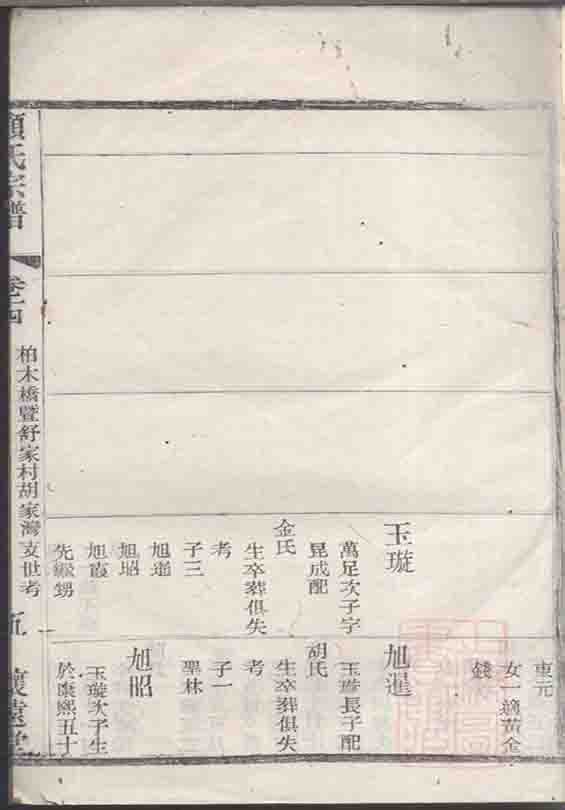 玉璇
萬足次子字
晁成配
金氏
生卒葬俱失
考
子三
旭暹
旭昭
旭霞
先繼甥
東元
女一適黃金
錢
旭暹
玉璇長子配
胡氏
生卒葬俱失
考
子一
聖林
旭昭
玉璇次子生
於康熙五十
氏宗譜
卷十四
柏木橋暨舒家村胡家灣支世考
五